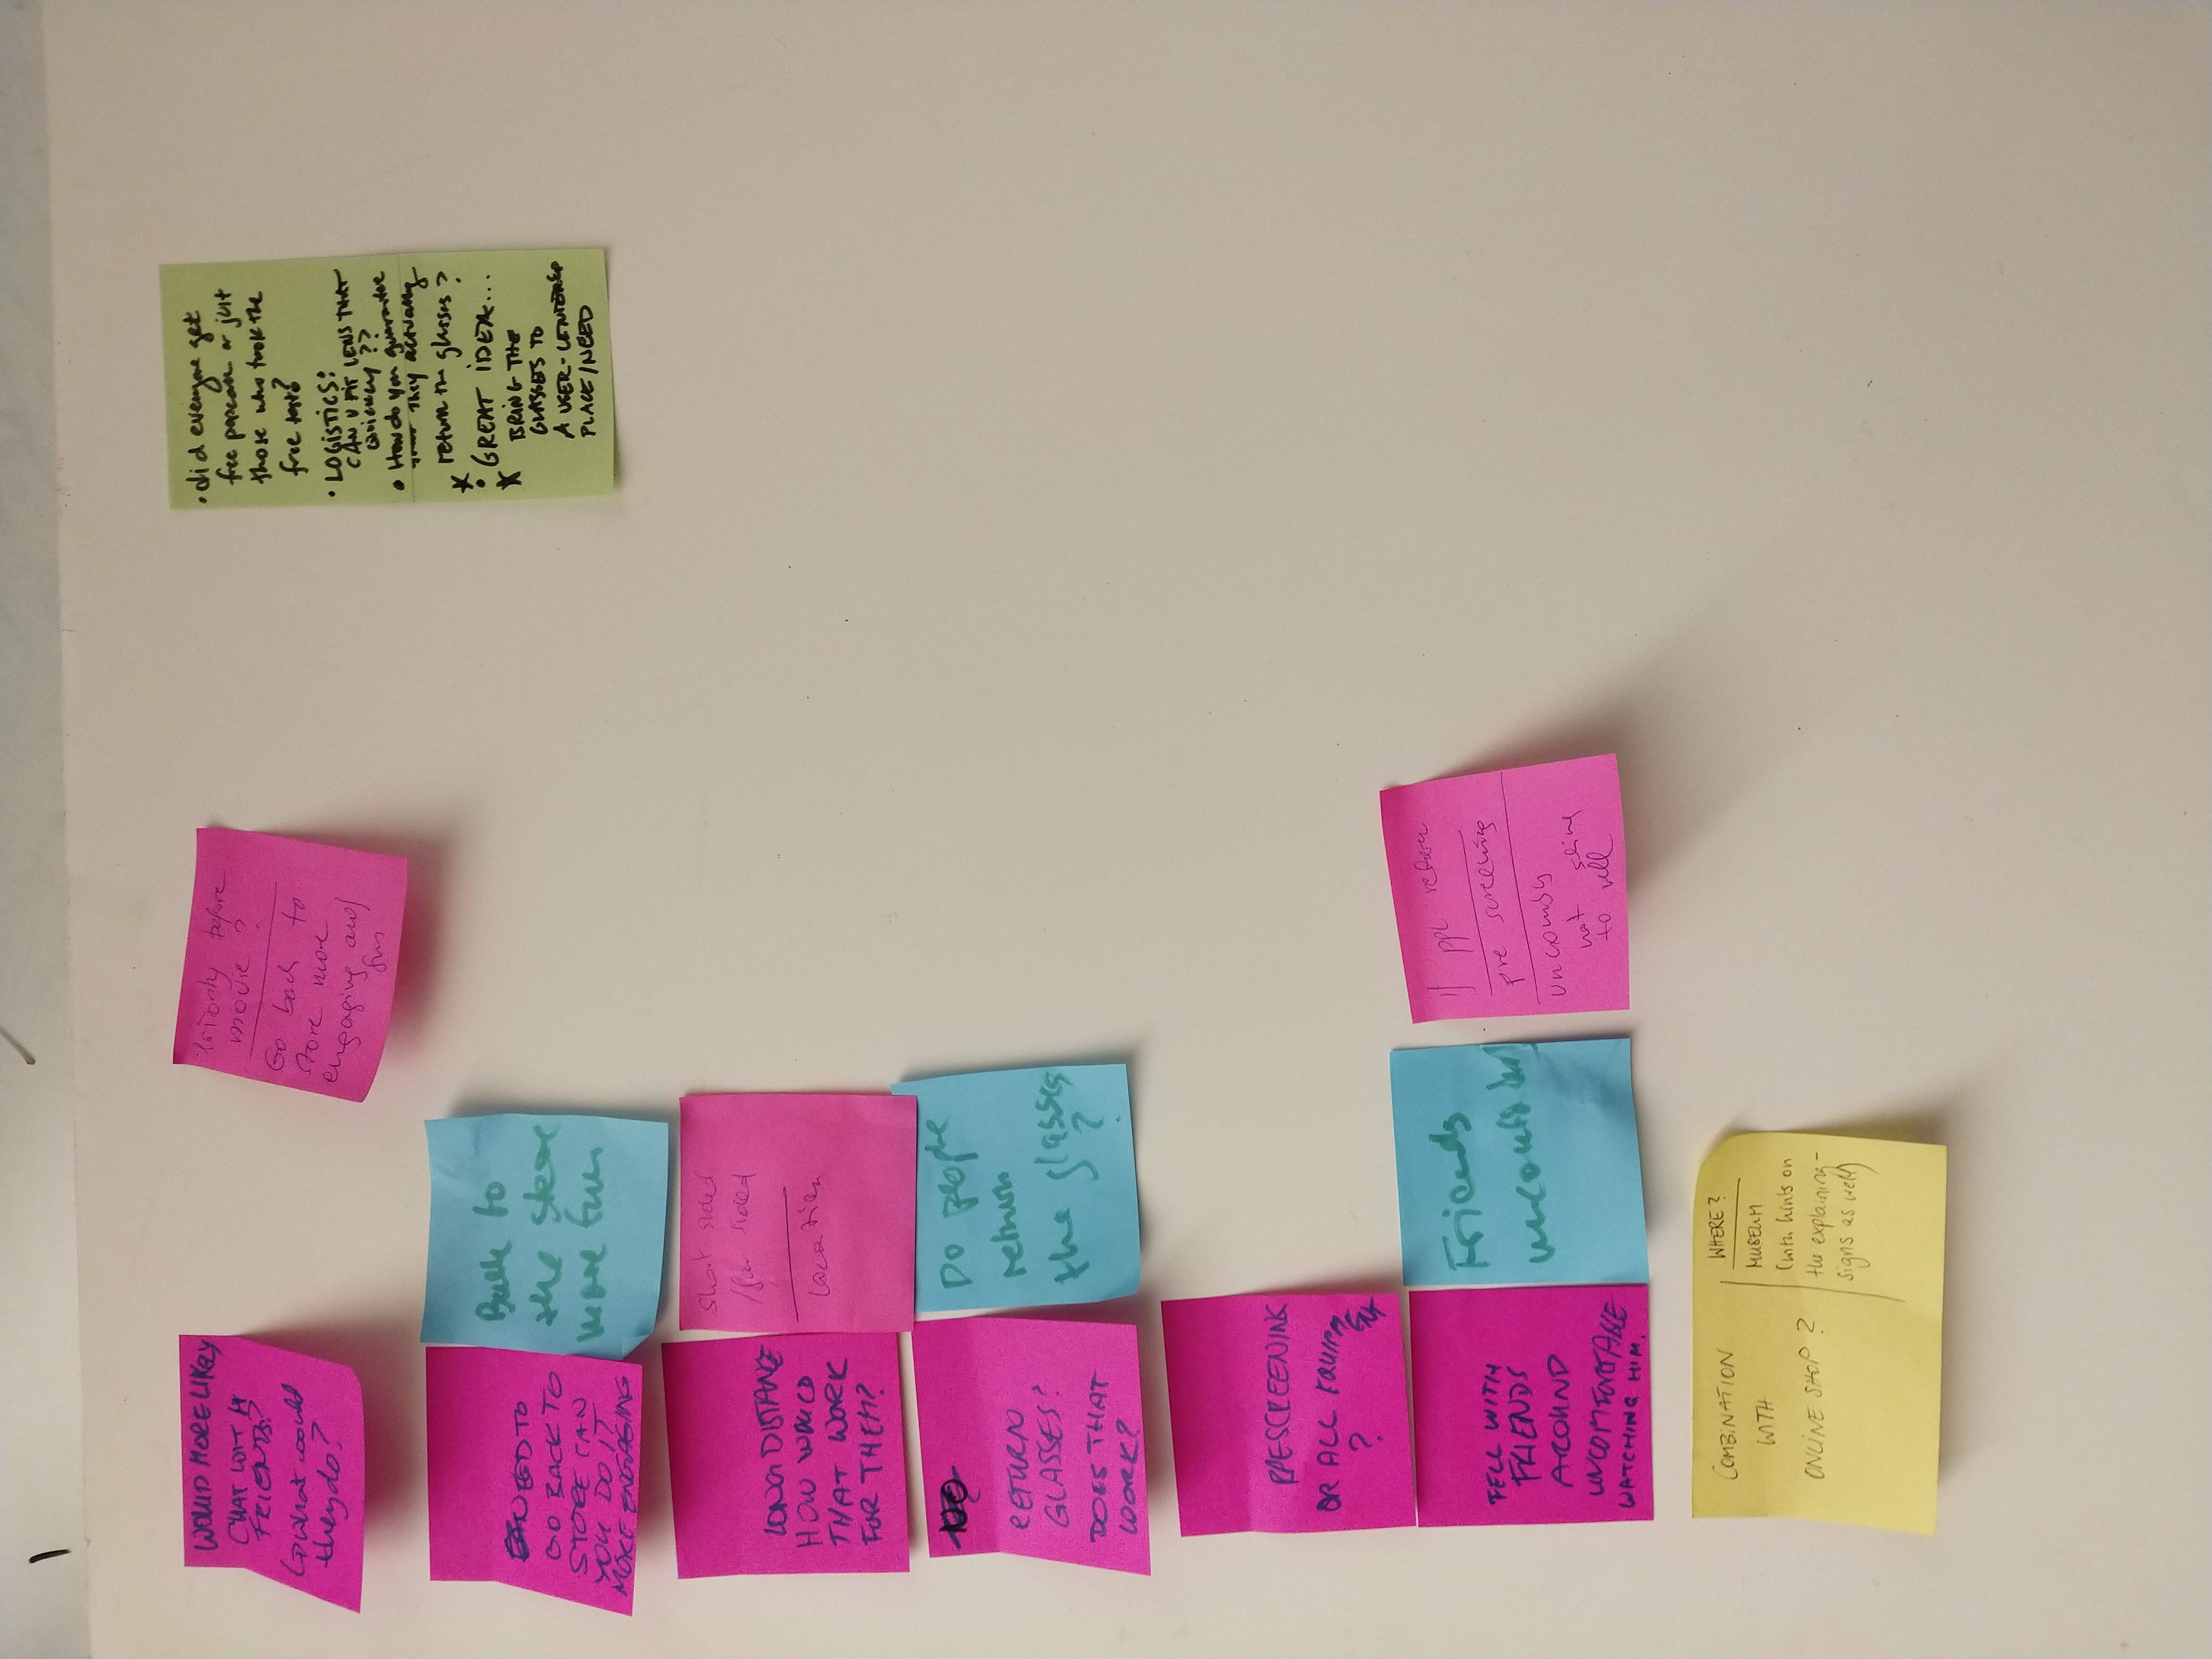 WOULD MORE LIKELY
CHAT WITH
FRIENDS?
↳ what would
they do?
Priority before
movie?
Go back to
store more
engaging and
fun
• did everyone get
free popcorn or just
those who took the
free test?
• LOGISTICS:
CAN U FIT LENS THAT
QUICKLY??
• How do you guarantee
that they actually
return the glasses?
• GREAT IDEA...
BRING THE
GLASSES TO
A USER-CENTERED
PLACE/NEED
NEED TO
GO BACK TO
STORE CAN
YOU DO IT
MORE ENGAGING
Back to
the store
more fun
LONG DISTANCE
HOW WOULD
THAT WORK
FOR THEM?
Short sided
/far sided
Location
NO
RETURN
GLASSES?
DOES THAT
WORK?
Do people
return
the glasses
?
PRESCREENING
OR ALL EQUIPMENT
?
FELL WITH
FRIENDS
AROUND
UNCOMFORTABLE
WATCHING HIM.
Friends
If ppl return
pre screening
uncomfy
not
to
COMBINATION
WITH
ONLINE SHOP?
WHERE?
MUSEUM
(with hints on
the explaining-
signs as well)